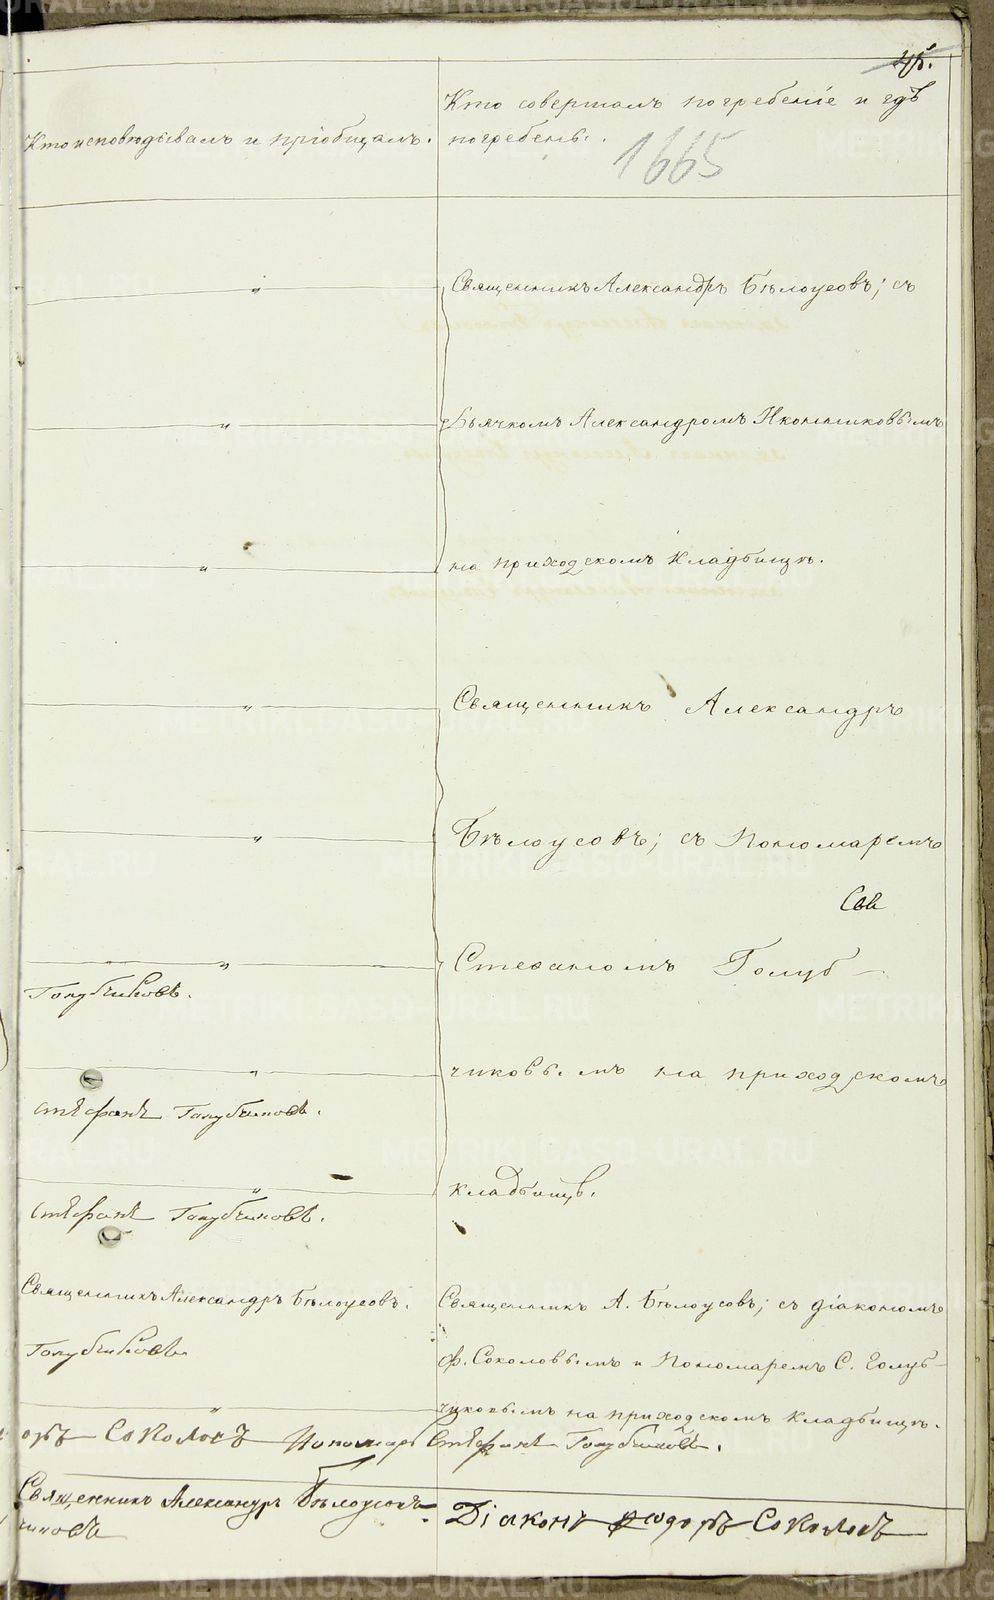 Кто совершалъ погребеніе и гдѣ
Кто исповѣдывалъ и пріобщалъ.
погребены.
1665
Священникъ Александръ Бѣлоусовъ; съ
Дьячкомъ Александромъ Иконниковымъ
на приходскомъ кладбищѣ.
Священникъ Александръ
Бѣлоусовъ; съ Пономаремъ
Сви
Стефаномъ Голуб-
Голубчиковъ.
чиковымъ на приходскомъ
Стефанъ Голубчиковъ.
кладбищѣ.
Стефанъ Голубчиковъ.
Священникъ Александръ Бѣлоусовъ.
Священникъ А. Бѣлоусовъ; съ діакономъ
Голубчиковъ
Ѳ. Соколовымъ и Пономаремъ С. Голуб-
чиковымъ на приходскомъ кладбищѣ.
оръ Соколовъ Пономарь Стефанъ Голубчиковъ.
Священникъ Александръ Бѣлоусовъ
Діаконъ Ѳеодоръ Соколовъ
чиковъ
METRIKI.GASO-URAL.RU